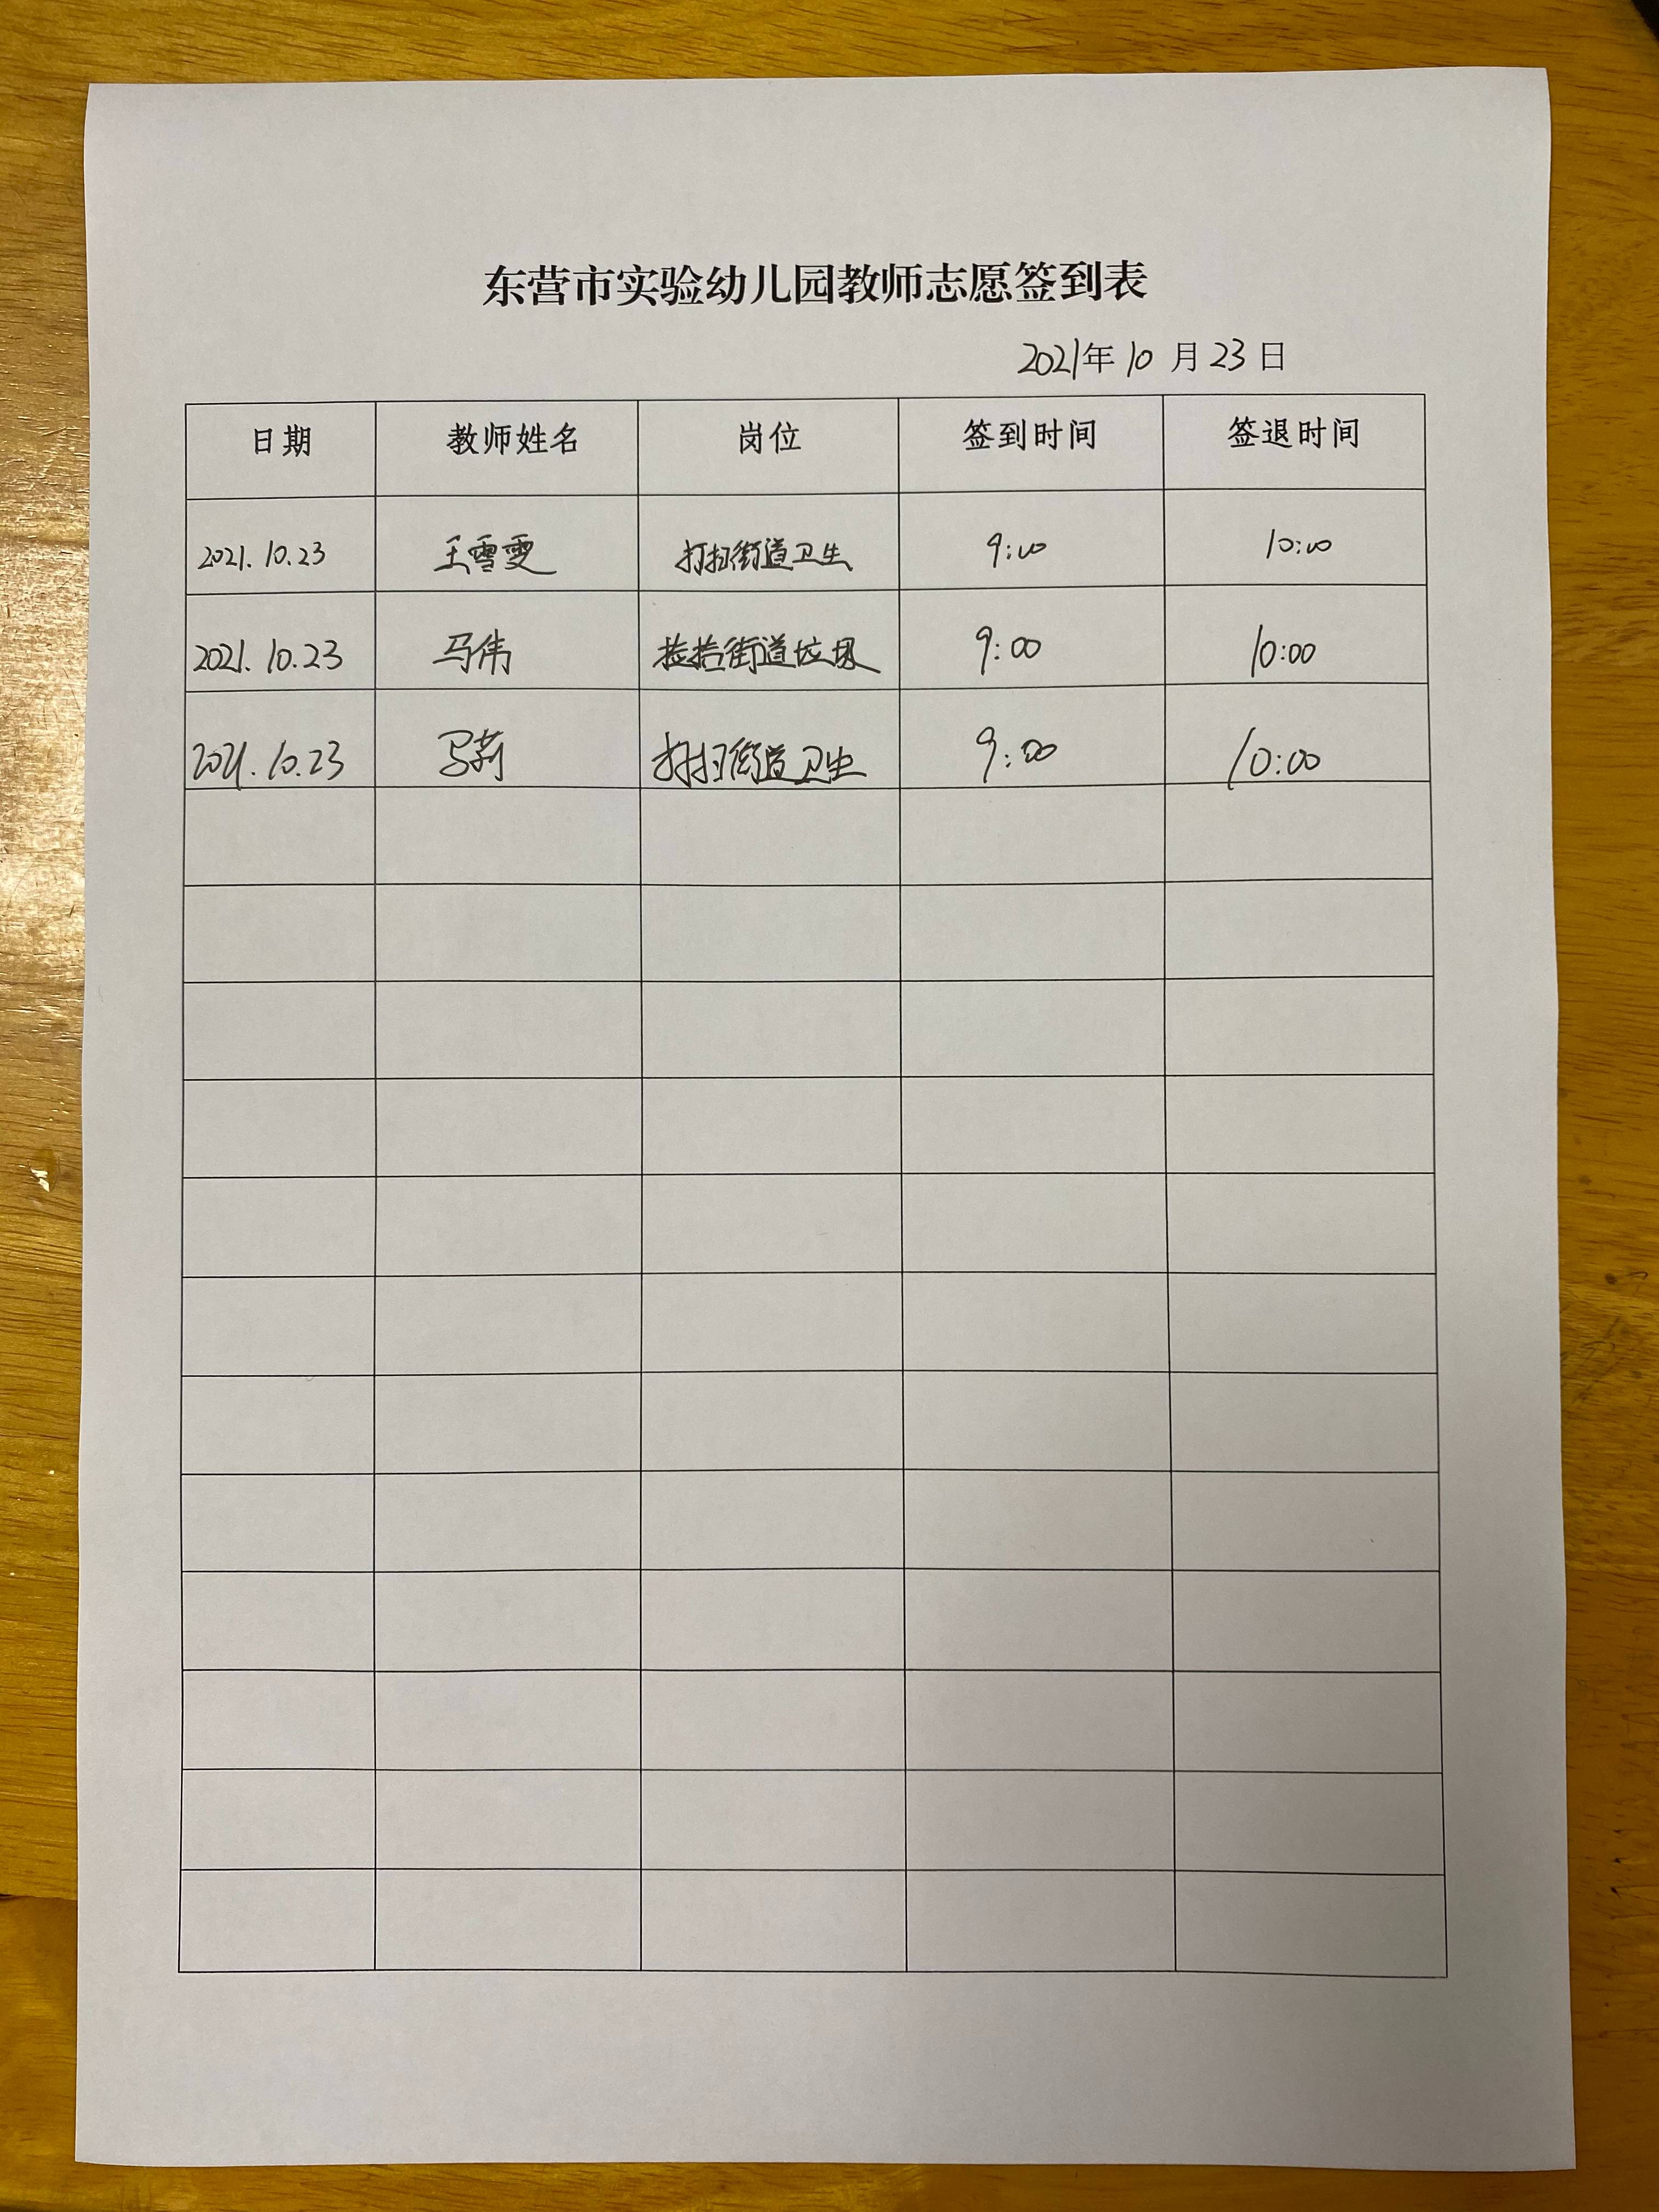 东营市实验幼儿园教师志愿签到表
2021年 10 月 23 日
日期 教师姓名 岗位 签到时间 签退时间
2021. 10.23 王雪雯 打扫街道卫生 9:00 10:00
2021. 10.23 马伟 捡拾街道垃圾 9:00 10:00
2021. 10.23 马莉 打扫街道卫生 9:00 10:00